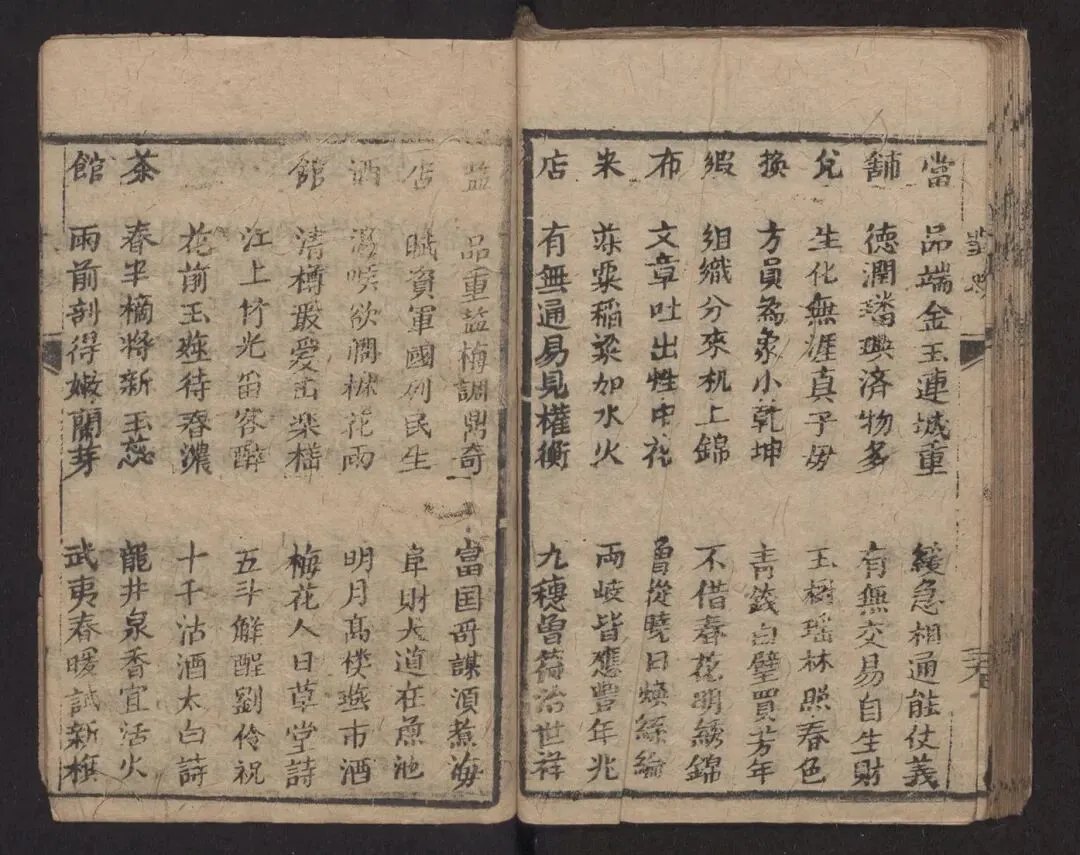 當 品端金玉連城重 緩急相通能仗義
舖 德潤璠璵済物多 有無交易自生財
兌 生化無涯真子母 玉樹瑶林照春色
換 方員為象小乾坤 青錢白璧買芳年
緞 組織分來机上錦 不借春花明綉錦
布 文章吐出性中花 曾從曉日煥絲綸
米 菽粟稻粱如水火 兩岐皆應豐年兆
店 有無通易見權衡 九穗曾荷治世祥
盐 品重盐梅調鼎奇 富国哥謀須煮海
店 賦資軍國列民生 阜財大道在魚池
酒 欲 花雨 明月髙楼燕市酒
館 清樽最愛 梅花人日草堂詩
江上竹光留客醉 五斗解酲劉伶祝
花前玉 待春濃 十千沽酒太白詩
茶 春半摘將新玉蕊 龍井泉香宜活火
館 雨前剖得嫩蘭芽 武夷春暖試新旗